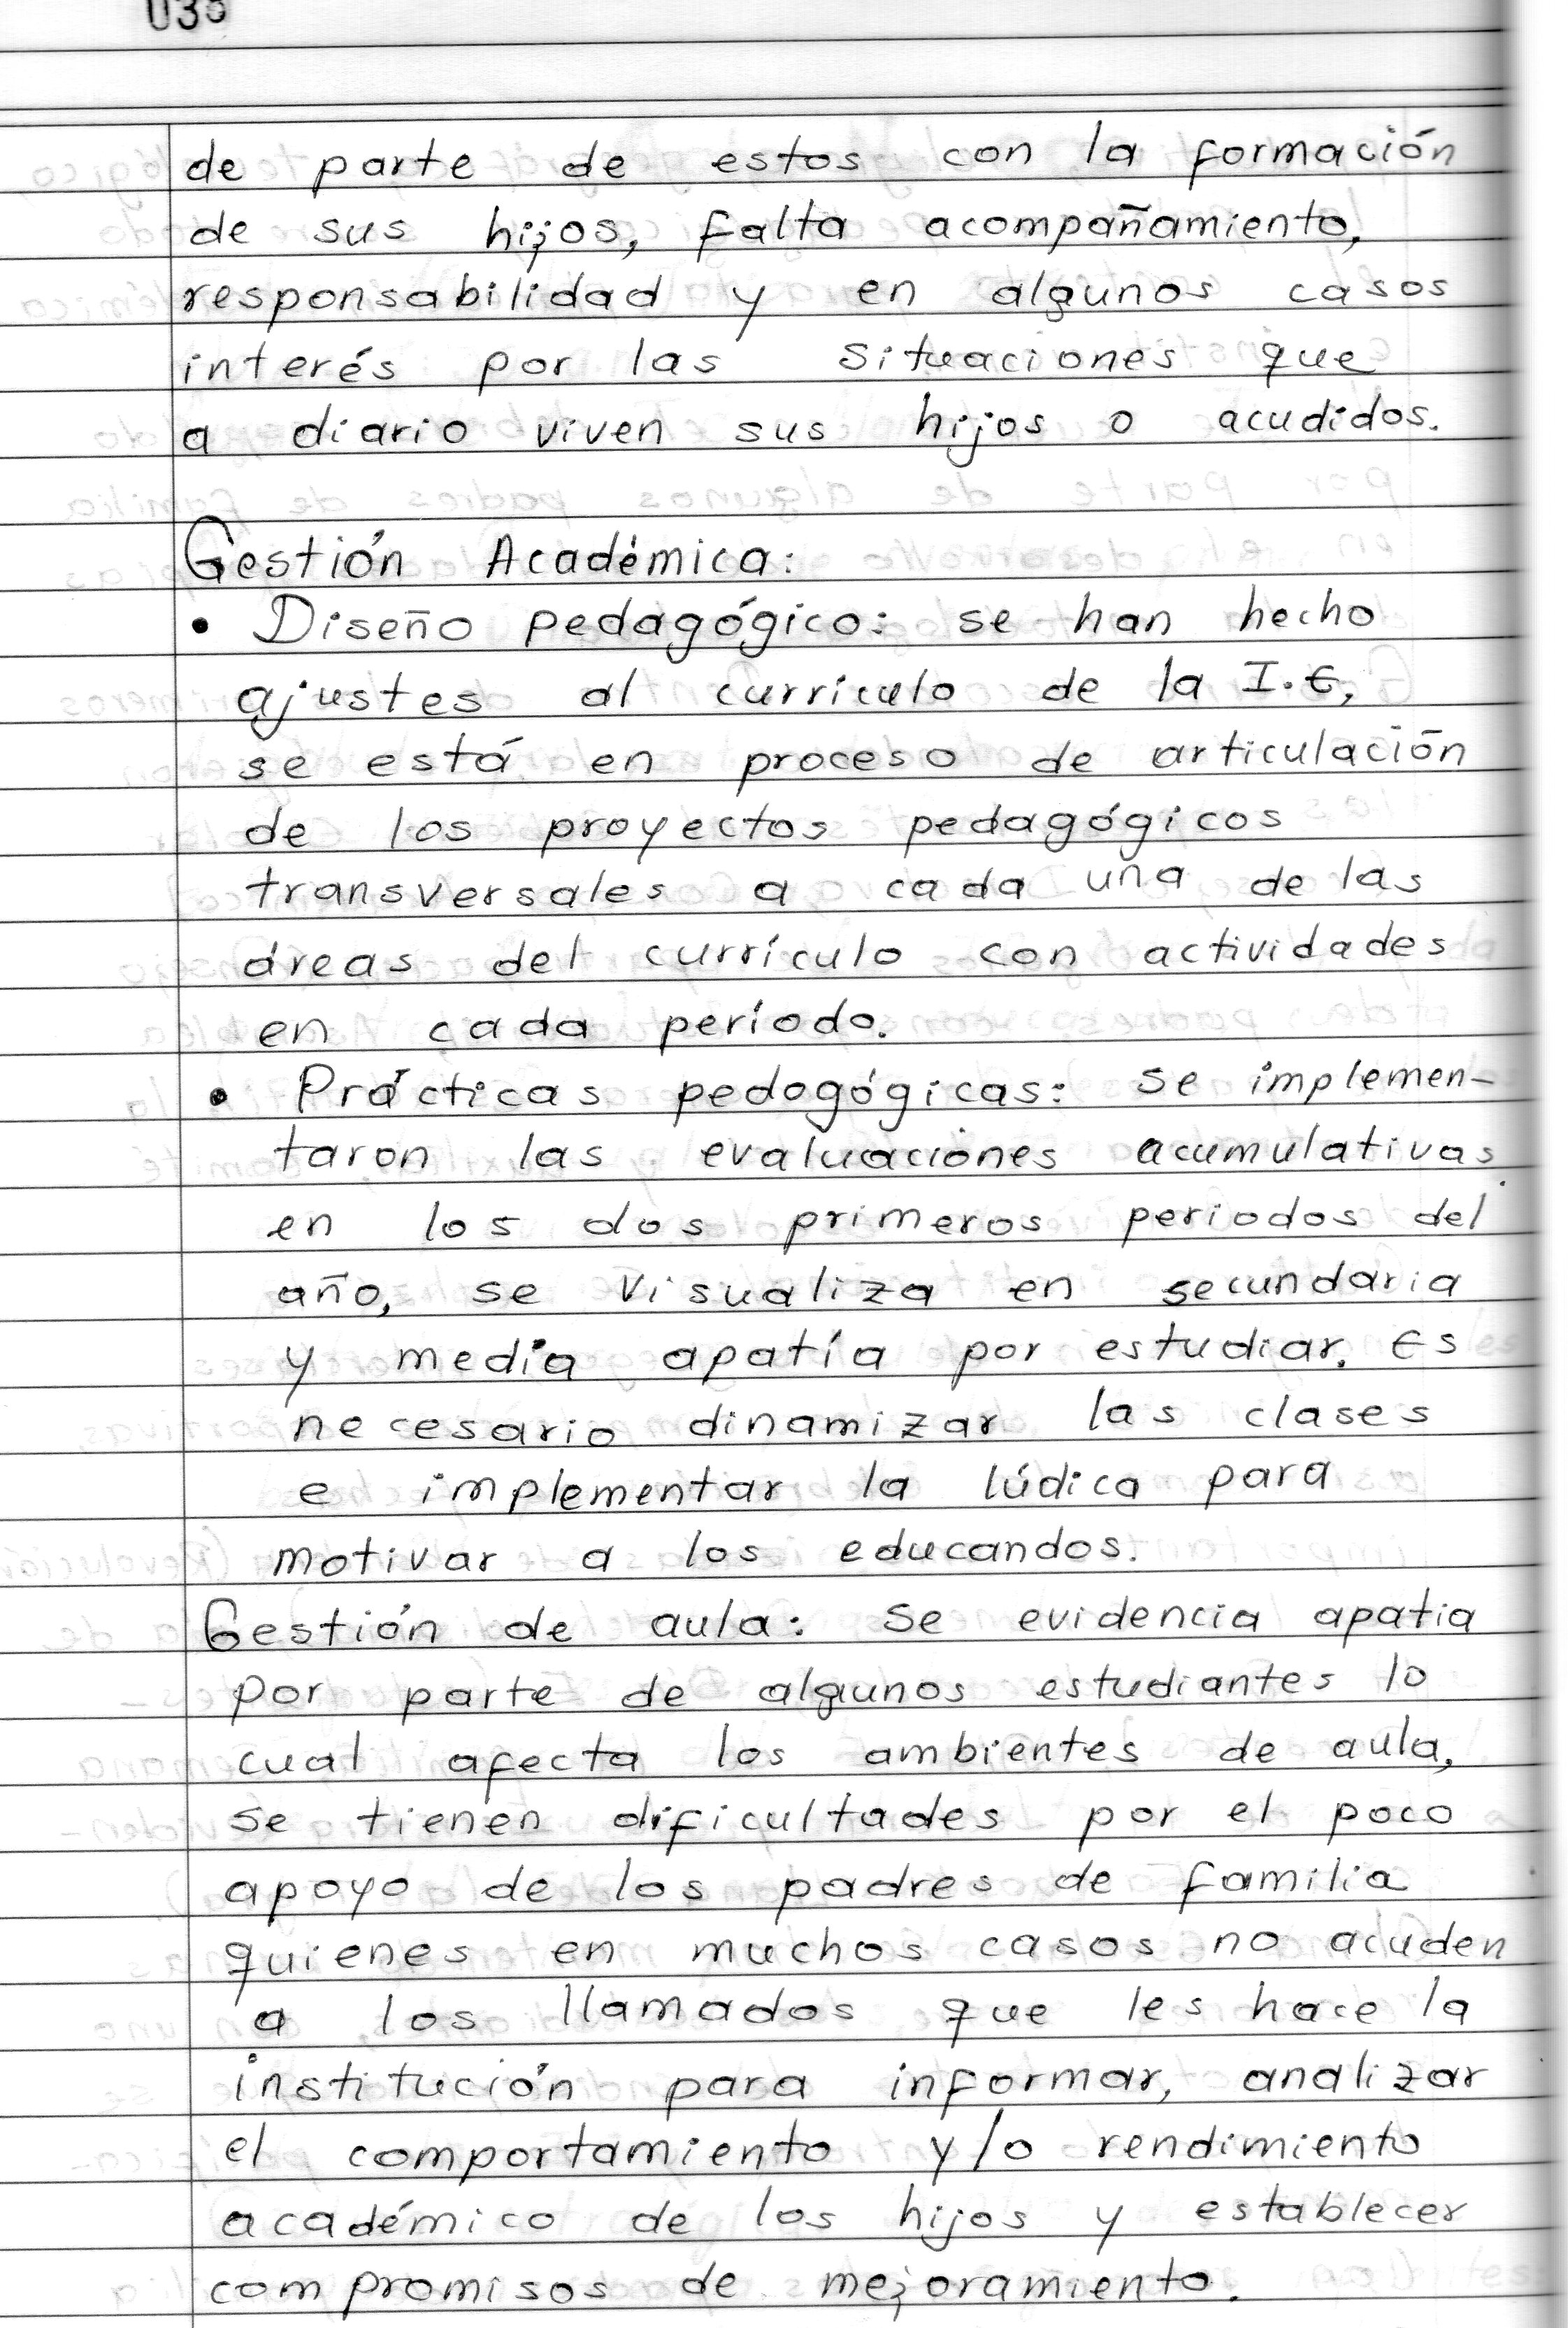 de parte de estos con la formación
de sus hijos, falta acompañamiento,
responsabilidad y en algunos casos
interés por las situaciones que
a diario viven sus hijos o acudidos.
Gestión Académica:
• Diseño pedagógico: se han hecho
ajustes al currículo de la I.E,
se está en proceso de articulación
de los proyectos pedagógicos
transversales a cada una de las
áreas del currículo con actividades
en cada período.
• Prácticas pedogógicas: se implemen-
taron las evaluaciones acumulativas
en los dos primeros periodos del
año, se visualiza en secundaria
y media apatía por estudiar. Es
necesario dinamizar las clases
e implementar la lúdica para
motivar a los educandos.
Gestión de aula: Se evidencia apatia
por parte de algunos estudiantes lo
cual afecta los ambientes de aula,
se tienen dificultades por el poco
apoyo de los padres de familia
quienes en muchos casos no acuden
a los llamados que les hace la
institución para informar, analizar
el comportamiento y/o rendimiento
académico de los hijos y establecer
compromisos de mejoramiento.